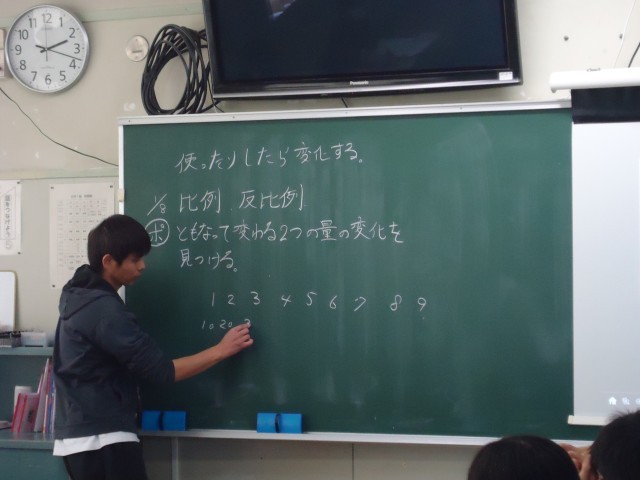 使ったりしたら変化する。
1/8 比例 反比例
ポ ともなって変わる2つの量の変化を
見つける。
1 2 3 4 5 6 7 8 9
10 20 3
Panasonic
12 1 2 3 4 5 6 7 8 9 10 11